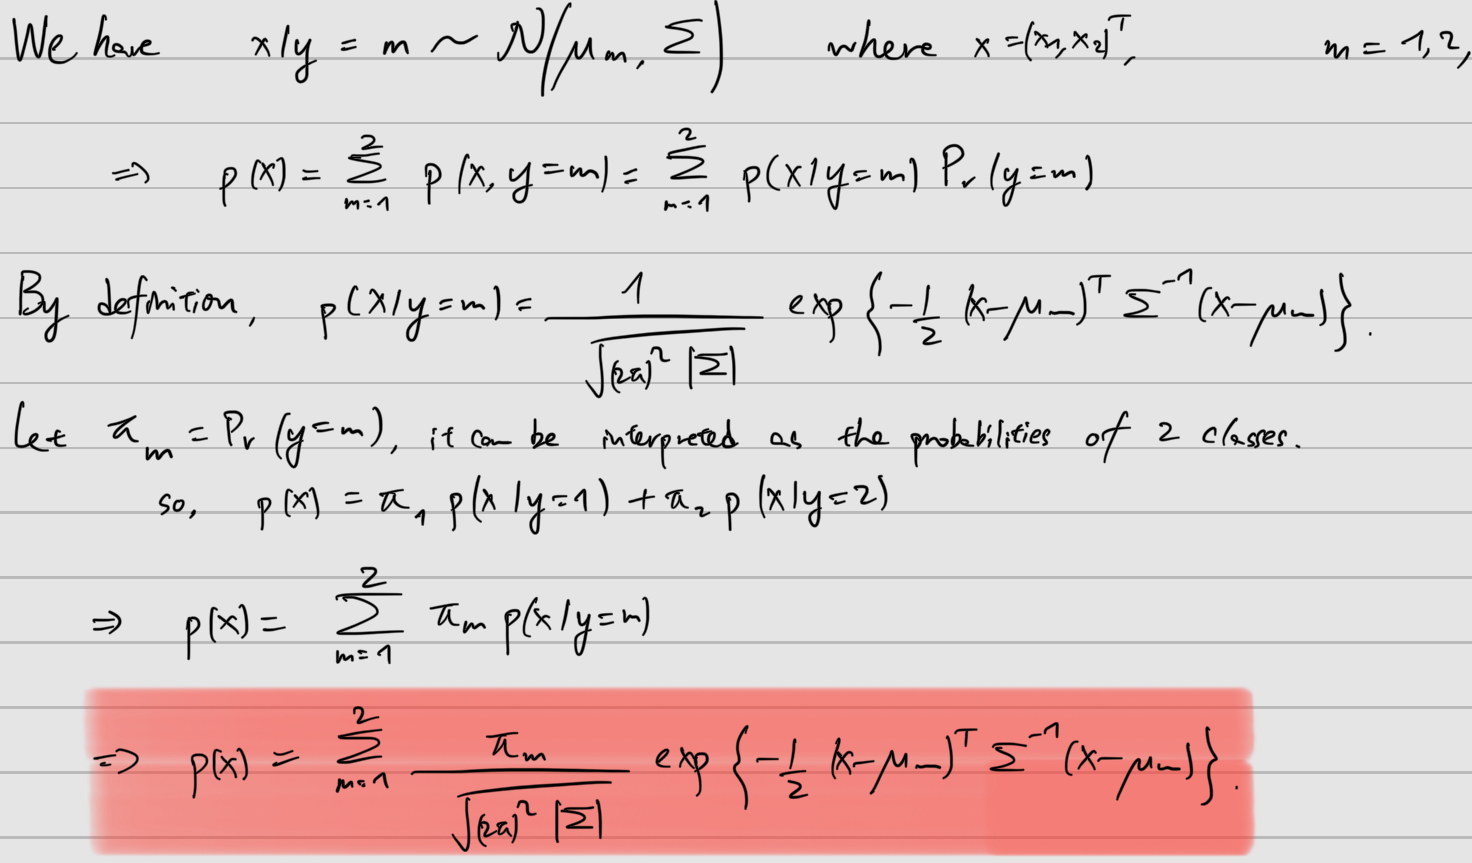 We have x|y = m ~ N(μm, Σ) where x = (x1, x2)^T, m = 1, 2,
⇒ p(x) = Σ_{m=1}^{2} p(x, y=m) = Σ_{m=1}^{2} p(x|y=m) Pr(y=m)
By definition, p(x|y=m) = 1 / √((2π)^2 |Σ|) exp {-1/2 (x-μm)^T Σ^{-1} (x-μm)}.
Let πm = Pr(y=m), it can be interpreted as the probabilities of 2 classes.
so, p(x) = π1 p(x|y=1) + π2 p(x|y=2)
⇒ p(x) = Σ_{m=1}^{2} πm p(x|y=m)
⇒ p(x) = Σ_{m=1}^{2} πm / √((2π)^2 |Σ|) exp {-1/2 (x-μm)^T Σ^{-1} (x-μm)}.